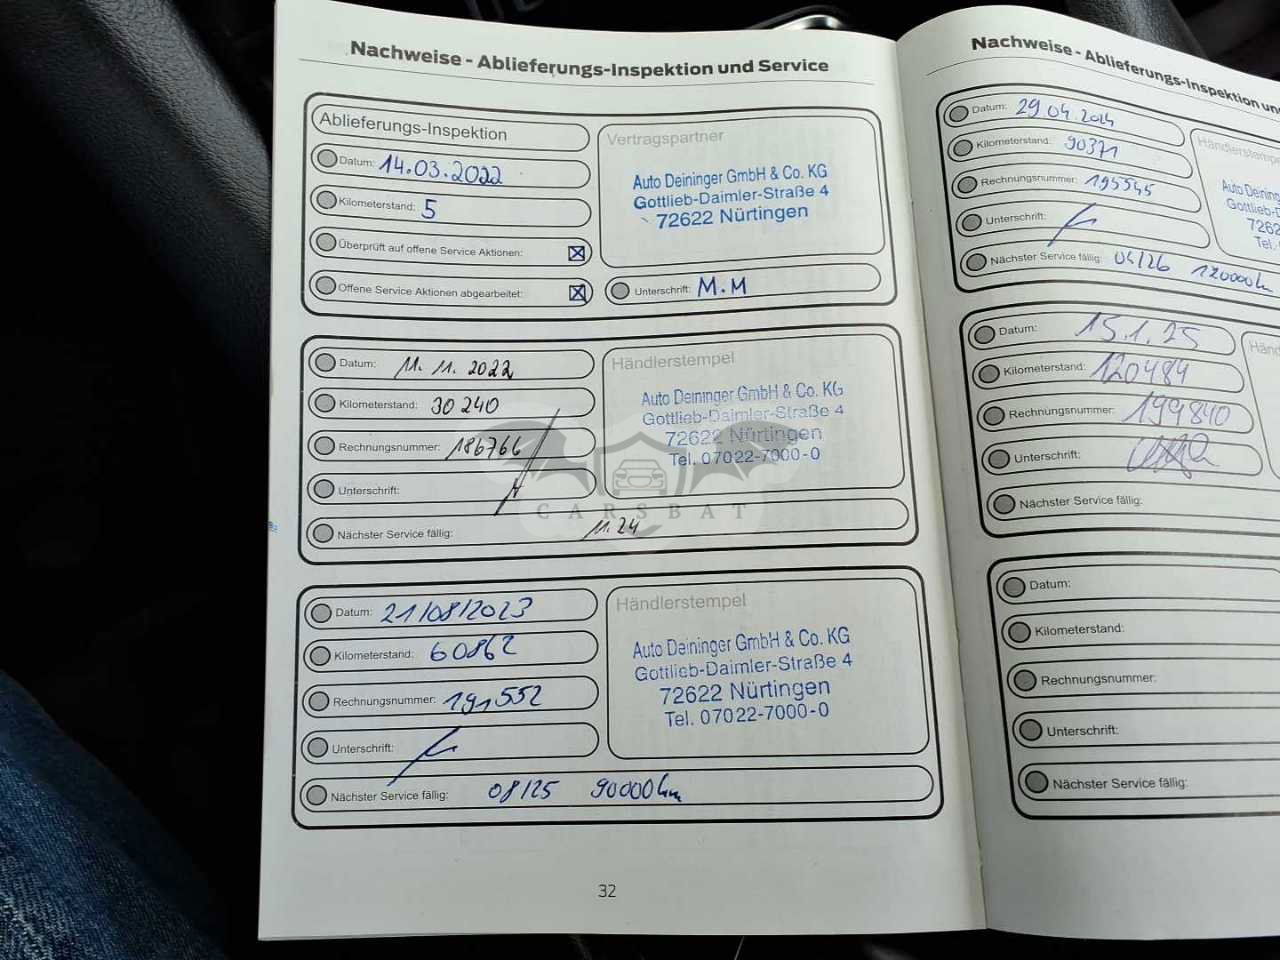 Nachweise - Ablieferungs-Inspektion und Service
Ablieferungs-Inspektion
Datum: 14.03.2022
Kilometerstand: 5
Überprüft auf offene Service Aktionen:
Offene Service Aktionen abgearbeitet:
Vertragspartner
Auto Deininger GmbH & Co. KG
Gottlieb-Daimler-Straße 4
72622 Nürtingen
Unterschrift: M.M
Datum: 11.11.2022
Kilometerstand: 30 240
Rechnungsnummer: 186766
Unterschrift:
Nächster Service fällig: 11.24
Händlerstempel
Auto Deininger GmbH & Co. KG
Gottlieb-Daimler-Straße 4
72622 Nürtingen
Tel. 07022-7000-0
CARSBAT
Datum: 21/08/2023
Kilometerstand: 60862
Rechnungsnummer: 191552
Unterschrift:
Nächster Service fällig: 08/25 90000km
Händlerstempel
Auto Deininger GmbH & Co. KG
Gottlieb-Daimler-Straße 4
72622 Nürtingen
Tel. 07022-7000-0
32
Nachweise - Ablieferungs-Inspektion un
Datum: 29.04.2024
Kilometerstand: 90371
Rechnungsnummer: 195545
Unterschrift:
Nächster Service fällig: 04/26 120000km
Händlerstempe
Auto Deining
Gottlieb-D
7262
Tel.
Datum: 15.1.25
Kilometerstand: 120484
Rechnungsnummer: 199840
Unterschrift:
Nächster Service fällig:
Händ
Datum:
Kilometerstand:
Rechnungsnummer:
Unterschrift:
Nächster Service fällig: